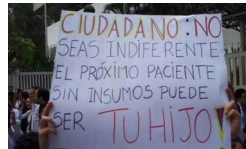 CIUDADANO: NO
SEAS INDIFERENTE
EL PRÓXIMO PACIENTE
SIN INSUMOS PUEDE
SER TU HIJO!